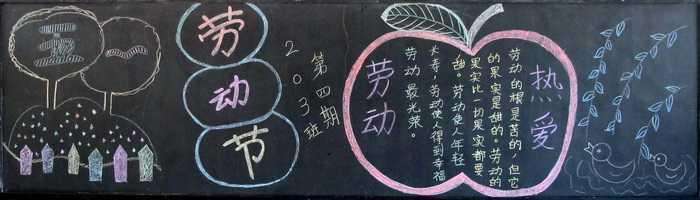 五
一
劳
动
节
第四期
203班
热爱
劳动
劳动的根是苦的，但它
的果实是甜的。劳动的
果实比一切果实都要
甜。劳动使人年轻
长寿，劳动使人得到幸福
劳动 最光荣。